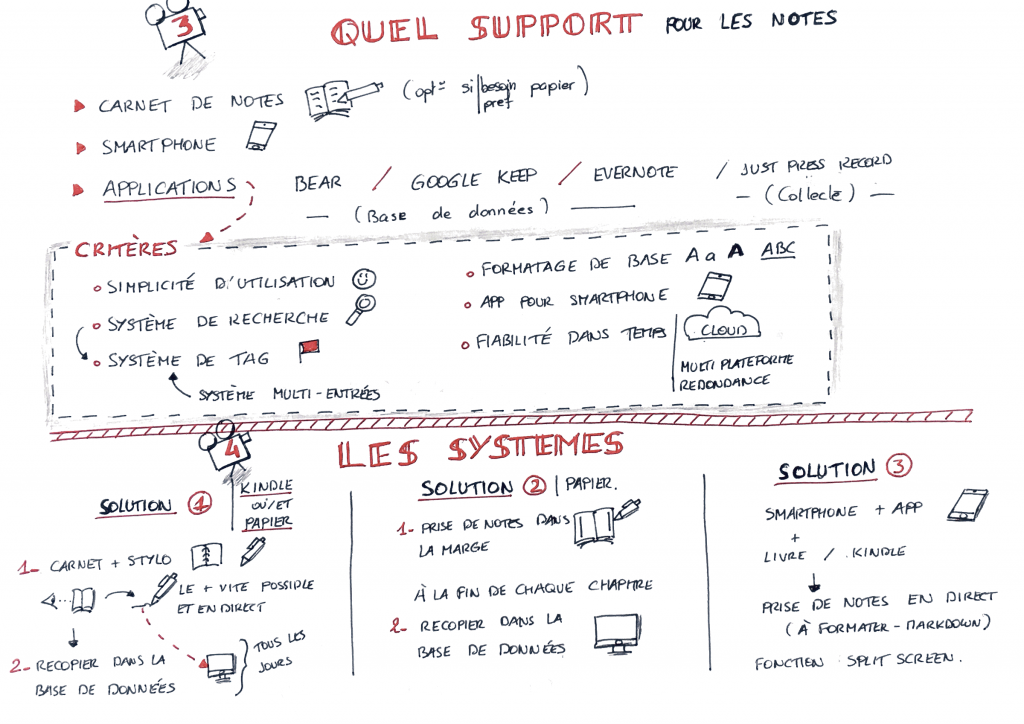 3
QUEL SUPPORT POUR LES NOTES
CARNET DE NOTES
(opt= si besoin papier)
pref
SMARTPHONE
APPLICATIONS
BEAR / GOOGLE KEEP / EVERNOTE / JUST PRESS RECORD
— (Base de données) —
— (Collecte) —
CRITÈRES
SIMPLICITÉ D'UTILISATION
SYSTÈME DE RECHERCHE
SYSTÈME DE TAG
SYSTÈME MULTI-ENTRÉES
FORMATAGE DE BASE A a A ABC
APP POUR SMARTPHONE
FIABILITÉ DANS TEMPS
CLOUD
MULTI PLATEFORME
REDONDANCE
4
LES SYSTEMES
SOLUTION 1
KINDLE
OU/ET
PAPIER
1- CARNET + STYLO
LE + VITE POSSIBLE
ET EN DIRECT
2- RECOPIER DANS LA
BASE DE DONNÉES
TOUS LES
JOURS
SOLUTION 2 | PAPIER.
1- PRISE DE NOTES DANS
LA MARGE
À LA FIN DE CHAQUE CHAPITRE
2- RECOPIER DANS LA
BASE DE DONNÉES
SOLUTION 3
SMARTPHONE + APP
+
LIVRE / KINDLE
PRISE DE NOTES EN DIRECT
(À FORMATER - MARKDOWN)
FONCTIEN SPLIT SCREEN.